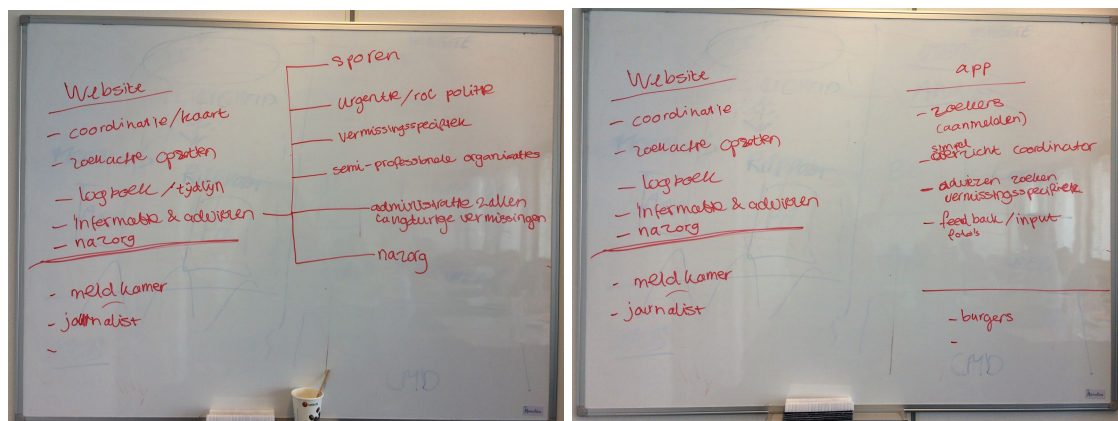 Website
- coordinatie/kaart
- zoekactie opzetten
- logboek/tijdlijn
- informatie & adviezen
- nazorg
- meldkamer
- journalist
-
sporen
urgentie/rol politie
vermissingsspecifiek
semi-professionele organisaties
administratie zaken
langdurige vermissingen
nazorg
Website
- coordinatie
- zoekactie opzetten
- logboek
- informatie & adviezen
- nazorg
- meldkamer
- journalist
app
- zoekers
(aanmelden)
simpel
- overzicht coordinator
- adviezen zoeken
vermissingsspecifiek
- feedback/input
foto's
- burgers
-
CMD